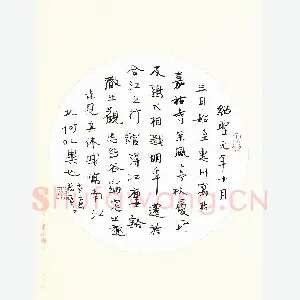 紹聖元年十月
三日始至惠川寓於
嘉祐寺松風亭杖履所
及鷄犬相識明年遷於
合江之行館得江樓豁
徹之觀忘幽谷窈窕之趣
未見其休戚
北何以異也